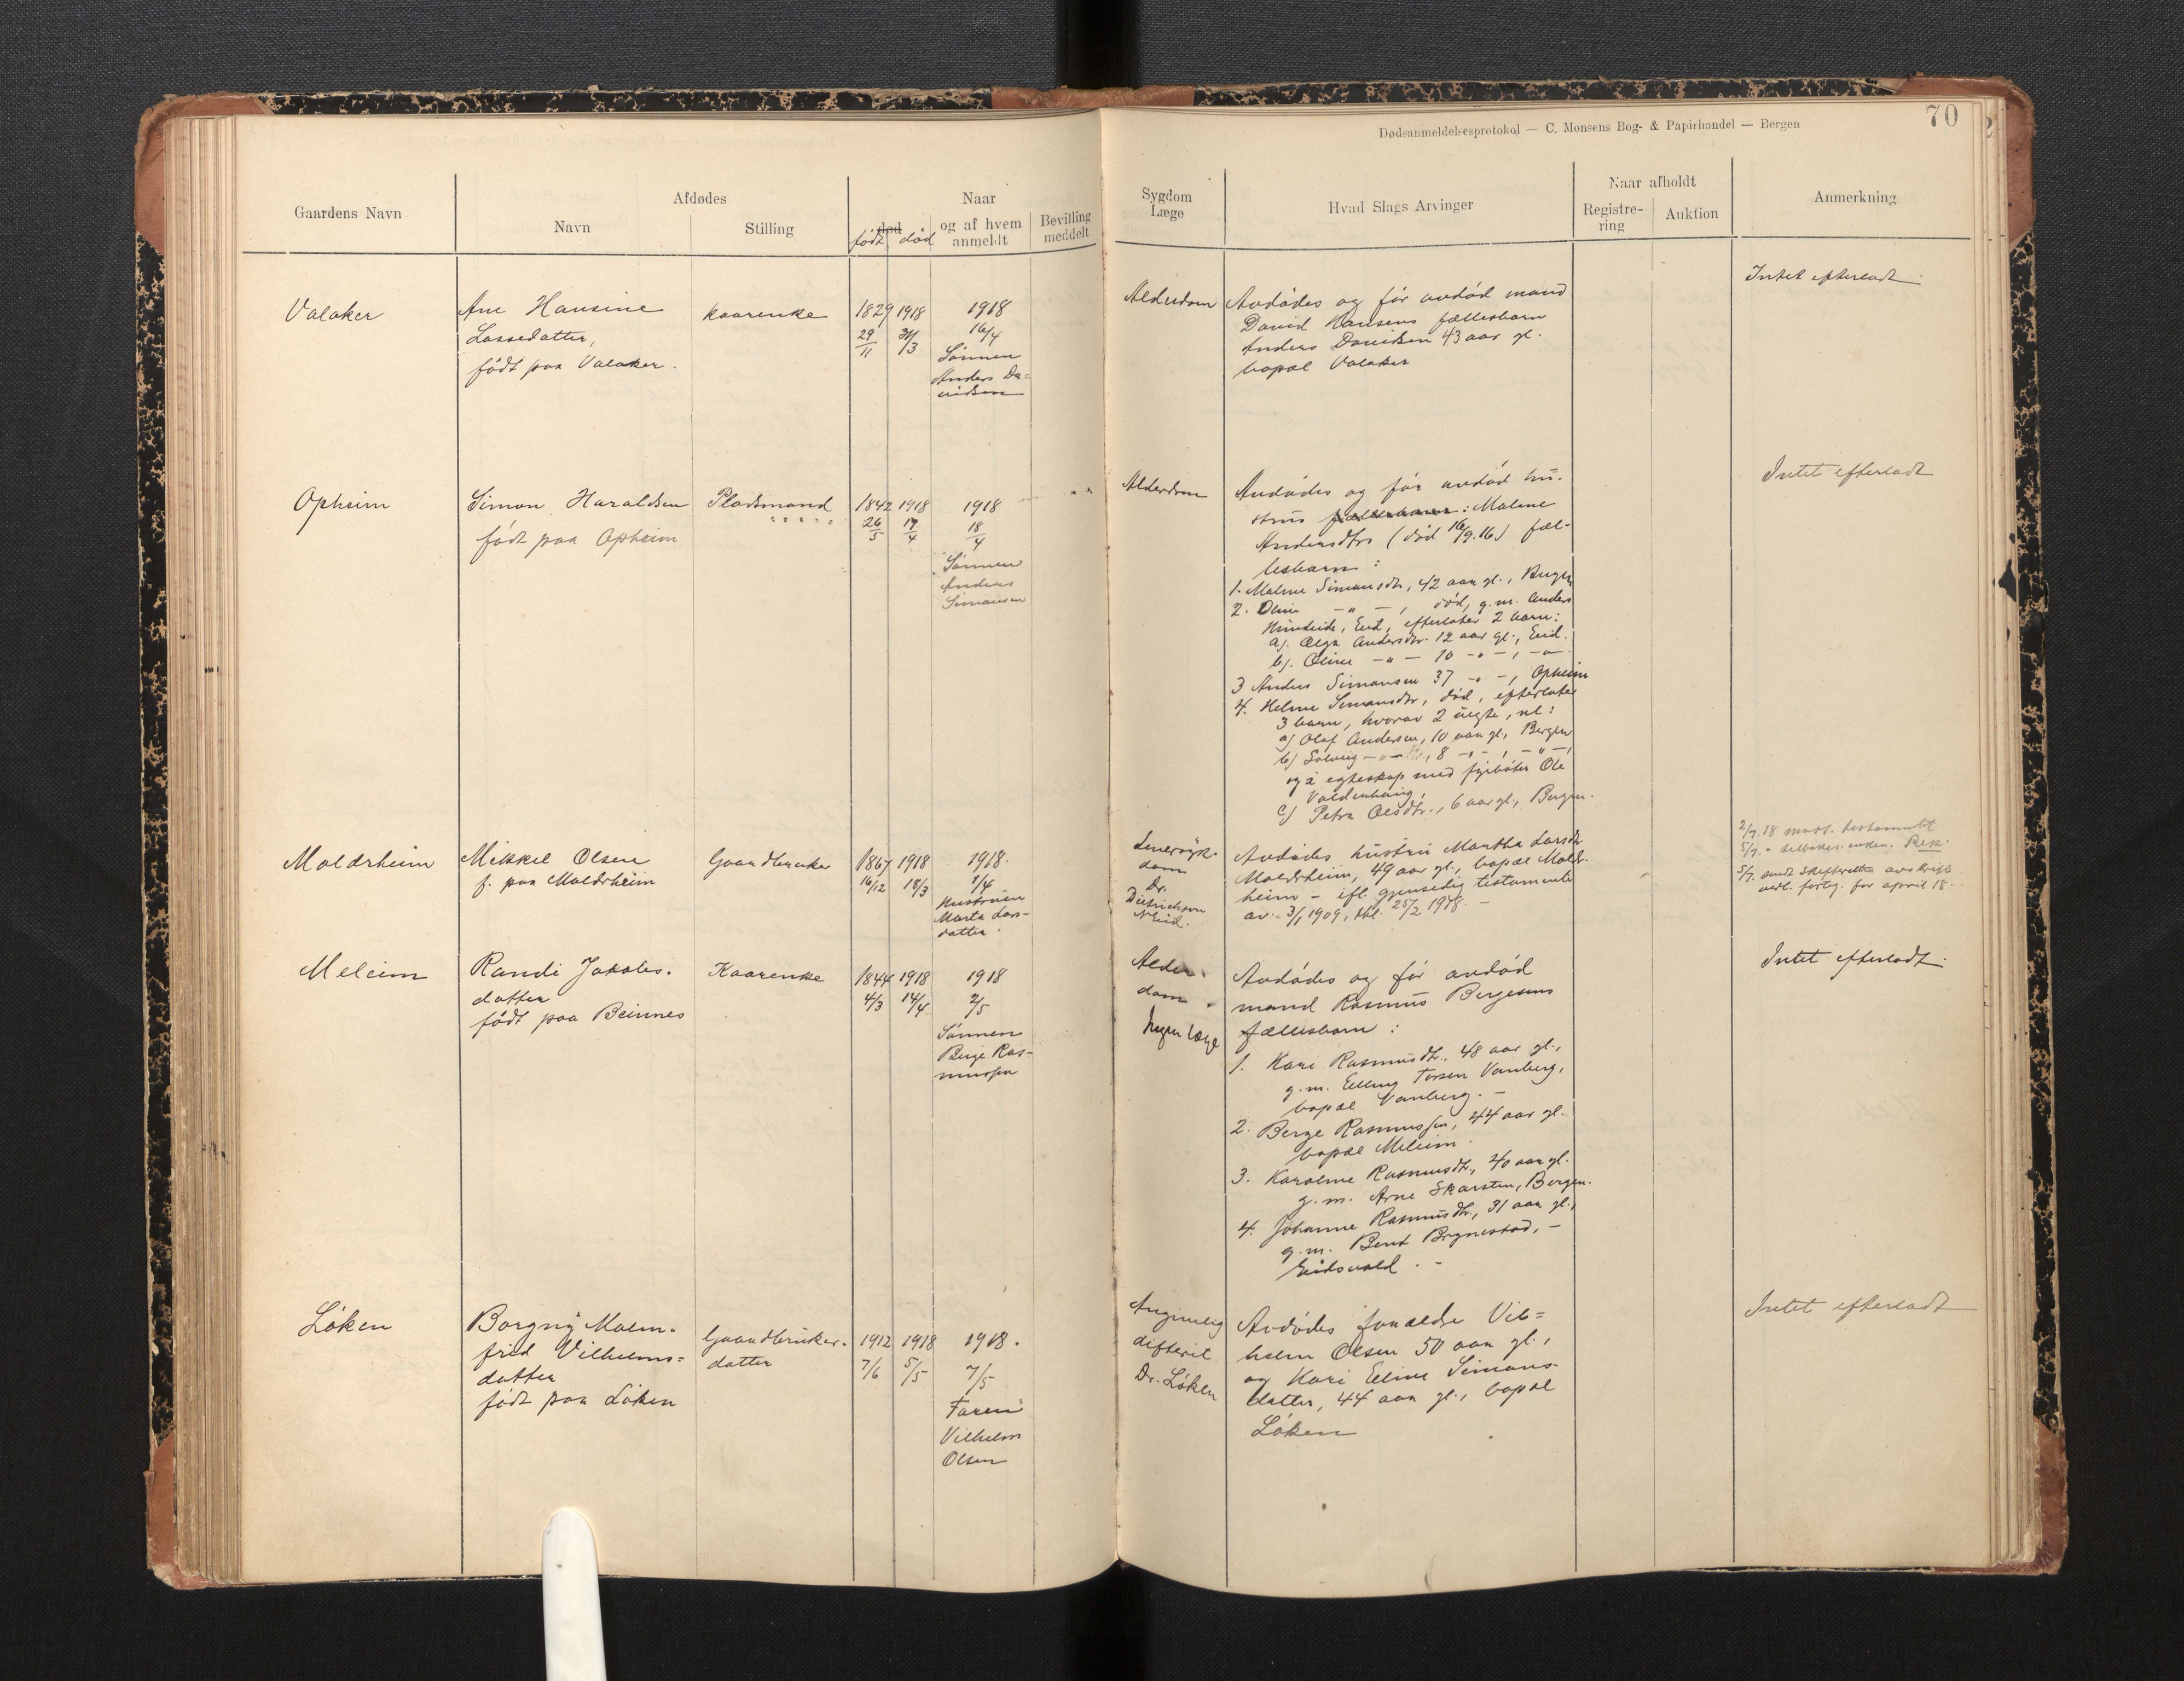 70
Dødsanmeldelsesprotokol — C. Monsens Bog- & Papirhandel — Bergen
Gaardens Navn
Afdødes
Navn
Stilling
født
død
død
Naar
og af hvem
anmeldt
Bevilling
meddelt
Sygdom
Læge
Hvad Slags Arvinger
Naar afholdt
Registre-
ring
Auktion
Anmerkning
Valaker
Ane Hansine
Lassedatter,
født paa Valaker.
kaarenke
1829
29/11
1918
31/3
1918
16/4
Sønnen
Anders Da=
vidsen
Alderdom
Avdødes og før avdød mand
David Hansens fællesbarn
Anders Davidsen 43 aar gl.
bopæl Valaker
Intet efterladt.
Opheim
Simon Haraldsen
født paa Opheim
Pladsmand
1842
26/5
1918
17/4
1918
18/4
Sønnen
Anders
Simonsen
Alderdom
Avdødes og før avdød hu-
strus fællesbarn: Malene
Andersdtrs (død 16/9.16) fæl-
lesbarn:
1. Malene Simonsdtr, 42 aar gl., Bergen
2. Oline —"—, død, g.m. Anders
Hundeide, Eid, efterlater 2 barn:
a). Olga Andersdtr. 12 aar gl., Eid.
b). Oline —"— 10 -"-, -"-
3 Anders Simonsen 37 -"-, Opheim
4. Helene Simonsdtr, død, efterlater
3 barn, hvorav 2 uegte, nl:
a) Olaf Andersen, 10 aar gl., Bergen
b) Solveig —"— 8 -"-, -"-,
og i egteskap med fyrbøter Ole
c) Petra Olsdtr., 6 aar gl., Bergen.
Intet efterladt
Moldrheim
Mikkel Olsen
f. paa Moldrheim
Gaardbruker
1867
16/12
1918
18/3
1918.
1/4
Hustruen
Marta Lars-
datter.
Leversyk-
dom
Dr.
Dietrichson
N.Eid.
Avdødes hustru Martha Larsdtr
Moldrheim, 49 aar gl., bopæl Moldr-
heim - ifl. gjensidig testamente
av 3/1 1909, thl. 25/2 1918. -
2/7.18 mott. testamentet
5/7. " tilbakes. Resk.
5/7. sendt Skifteretten avskrift
vedl. fortg. for april 18.
Meleim
Randi Jakobs-
datter
født paa Beinnes
Kaarenke
1844
4/3
1918
14/4
1918
2/5
Sønnen
Berge Ras-
mussen
Alder-
dom
Ingen læge
Avdødes og før avdød
mand Rasmus Bergesens
fællesbarn:
1. Kari Rasmusdtr. 48 aar gl.,
g.m. Elling Tørsen Vanberg,
bopæl Vanberg. -
2. Berge Rasmussen, 44 aar gl.
bopæl Meleim.
3. Karoline Rasmusdtr, 40 aar gl.
g.m. Arne Skarsten, Bergen.
4. Johanne Rasmusdtr., 31 aar gl.,
g.m. Bent Brynestad, -
Eidsvold. -
Intet efterladt.
Løken
Borgny Malm-
frid Vilhelms=
datter
født paa Løken
Gaardbruker-
datter
1912
7/6
1918
5/5
1918.
7/5
Faren
Vilhelm
Olsen
difterit
Dr. Løken
Avdødes forældre Vil=
helm Olsen 50 aar gl.,
og Kari Eline Simons-
datter, 44 aar gl., bopæl
Løken
Intet efterladt